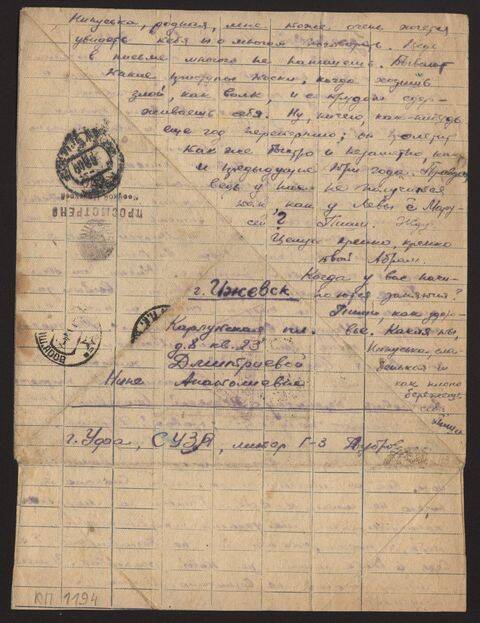 Нинуська, родная, мне тоже очень хочется
увидеть тебя и о многом поговорить. Ведь
в письме много не напишешь. Бывают
такие приступы тоски, когда ходишь
злой, как волк, и с трудом сдер-
живаешь себя. Ну, ничего, как-нибудь
еще год перетерпим; он пролетит
так же быстро и незаметно, как
и предыдущие три года. Правда,
ведь у нас не получится
так как у Левы с Мару-
сей? Пиши. Жду.
Целую крепко, крепко
твой Абрам.
Когда у вас начи-
наются занятия?
Пиши как здоро-
вье. Какая ты,
Нинуська, сла-
бенькая и
как плохо
бережешь
себя
Пиши
ПРОСМОТРЕНО
Военной Цензурой
г. Ижевск
пл.
д. 8 кв. 23
Дмитриевой
Нине
г. Уфа, литер Г-3
КП 1194